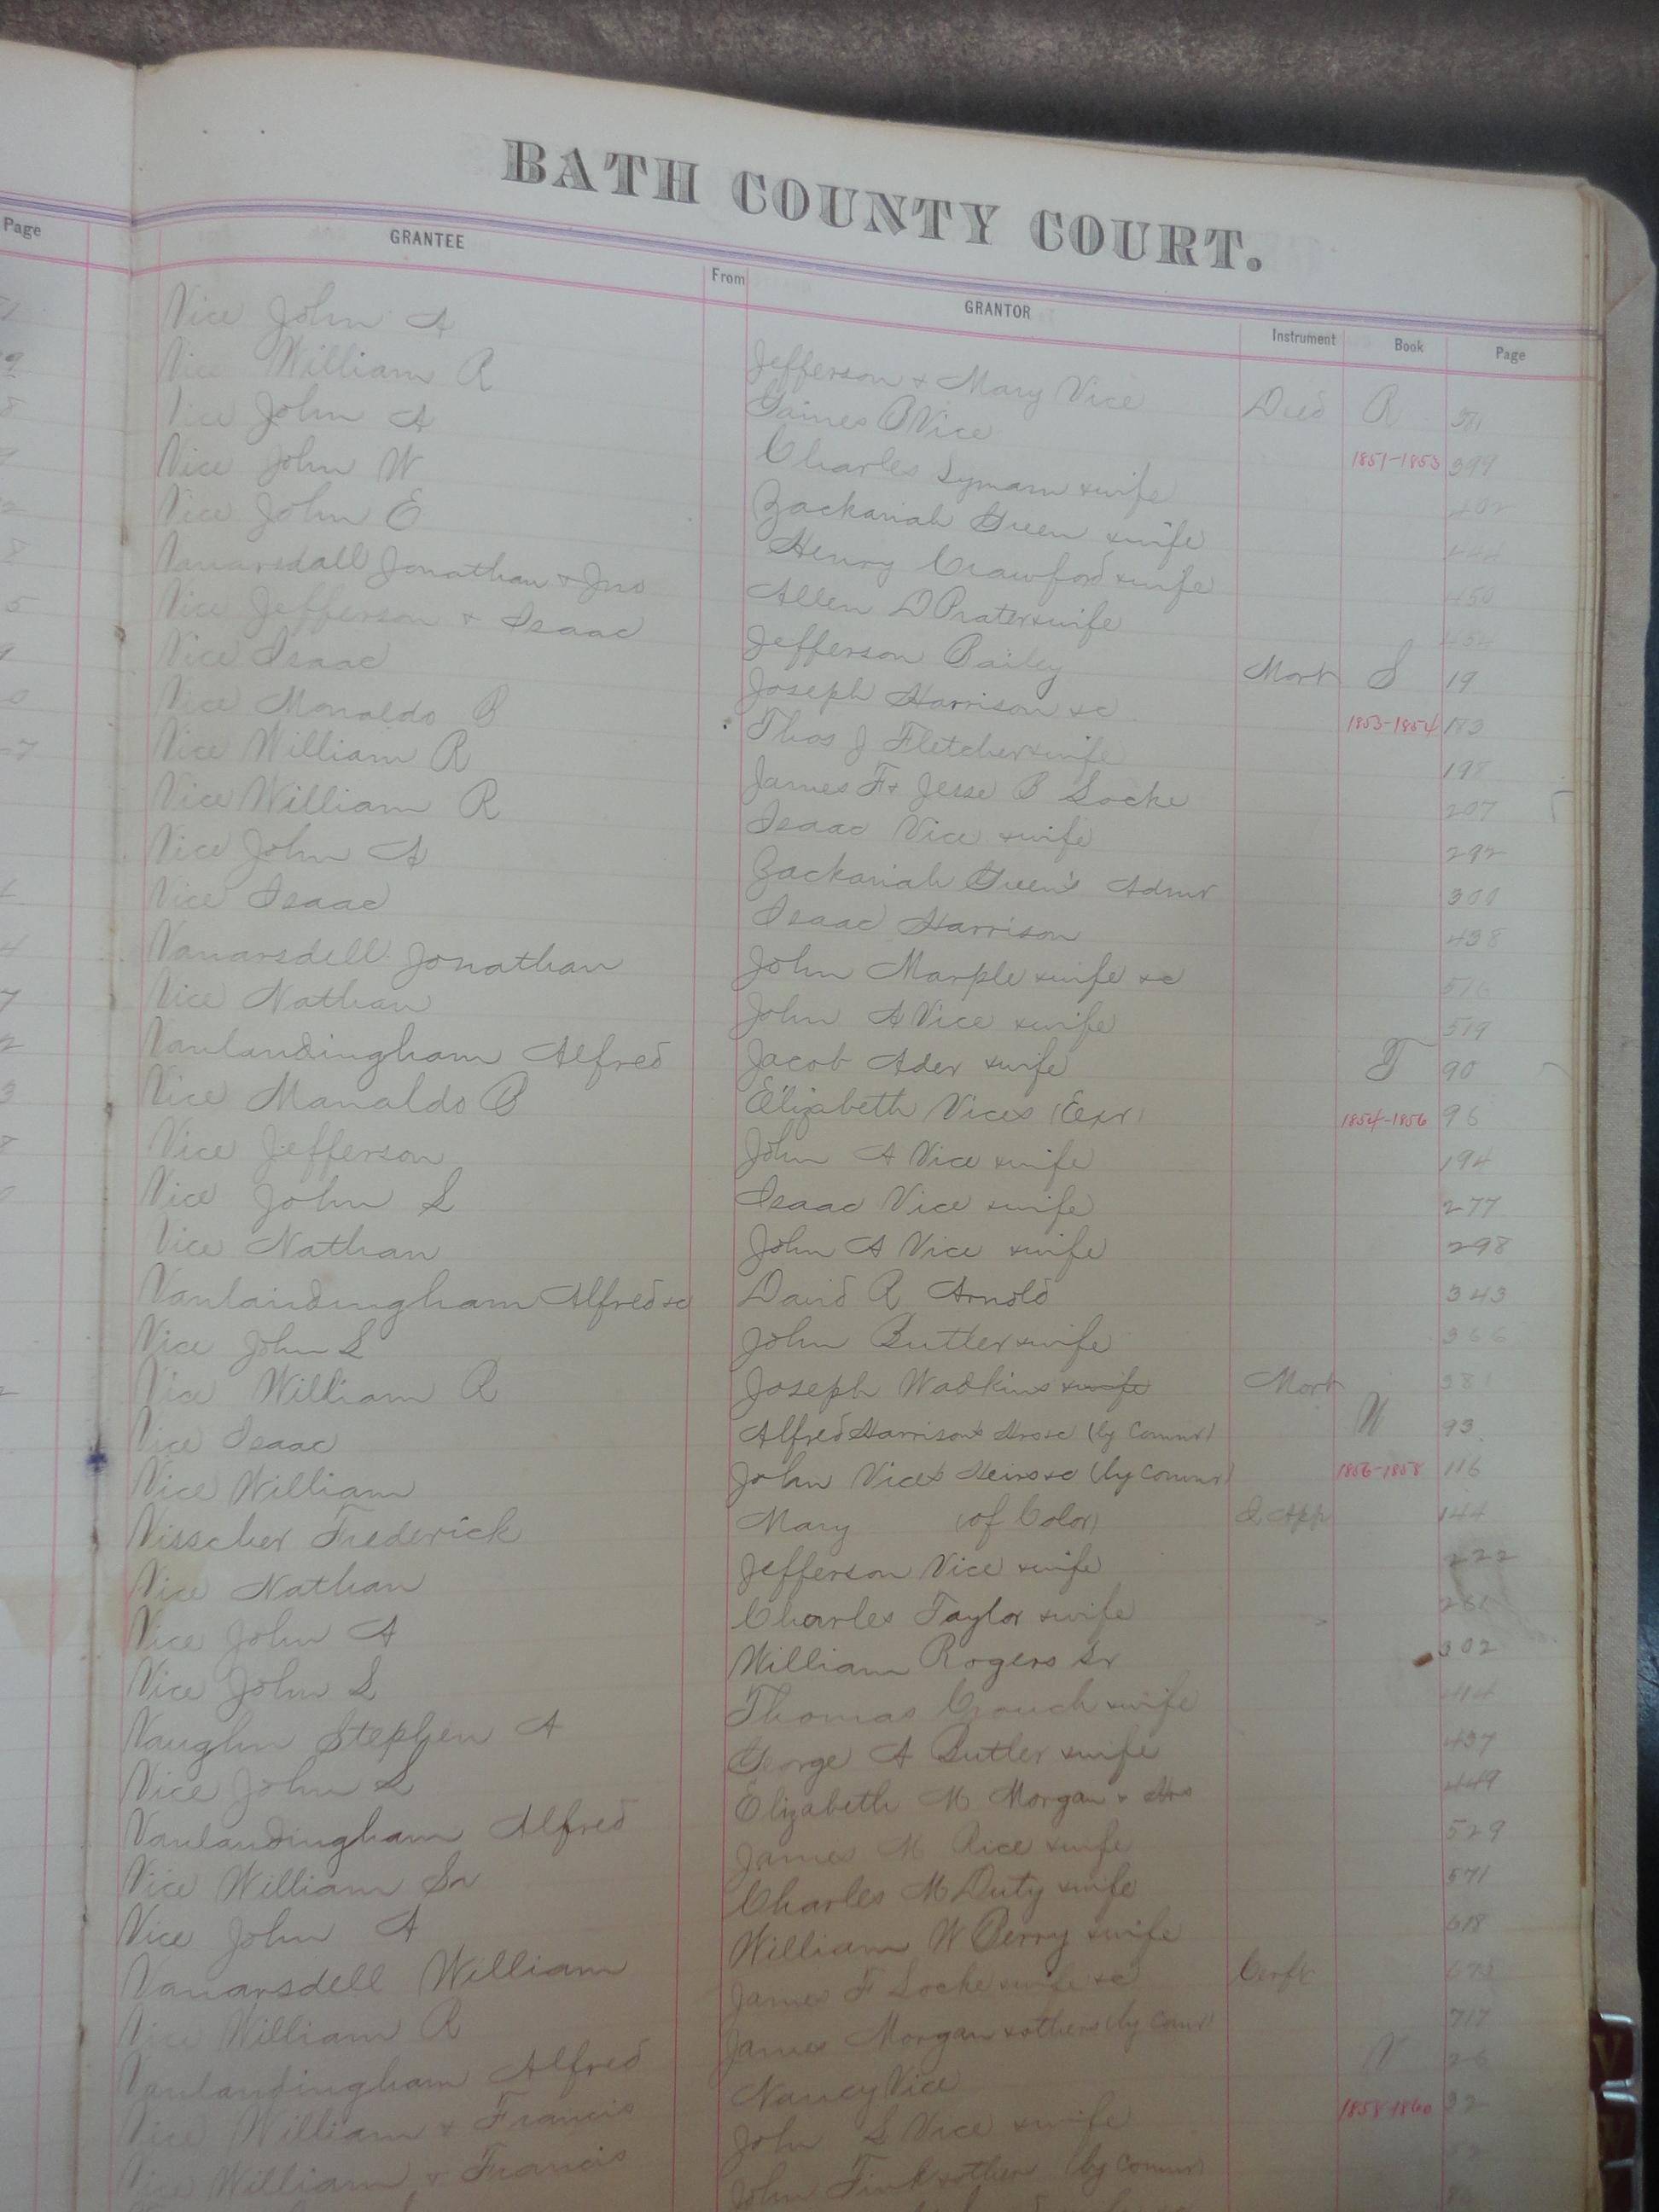 BATH COUNTY COURT.
Page GRANTEE From GRANTOR Instrument Book Page
Vice John A Jefferson & Mary Vice Deed R 381
Vice William R Gaines B Vice 1851-1853 399
Vice John A Charles Lymam & wife 402
Vice John W Zackariah Green & wife 444
Vice John E Henry Crawford & wife 450
Vanarsdall Jonathan & Jno Allen D Prater & wife
Vice Jefferson & Isaac Jefferson Bailey Mort S 19
Vice Isaac Joseph Harrison &c 1853-1854 173
Vice Monaldo B Thos J Fletcher & wife 198
Vice William R James F & Jesse B Locke 207
Vice William R Isaac Vice & wife 292
Vice John A Zackariah Green's Admr 300
Vice Isaac Isaac Harrison 438
Vanarsdell Jonathan John Marple & wife &c
Vice Nathan John A Vice & wife 519
Vanlandingham Alfred Jacob Ader & wife T 90
Vice Manaldo B Elizabeth Vices (Exr) 1854-1856 96
Vice Jefferson John A Vice & wife 194
Vice John S Isaac Vice & wife 277
Vice Nathan John A Vice & wife 298
Vanlandingham Alfred &c David R Arnold 343
Vice John S John Butler & wife 366
Vice William R Joseph Wadkins & wife Mort 381
Vice Isaac Alfred Harrison's Hrs &c (by Commr) 93
Vice William John Vice's Heirs &c (by Commr) 1856-1858 116
Visscher Frederick Mary (of Color) 144
Vice Nathan Jefferson Vice & wife 222
Vice John A Charles Taylor & wife
Vice John S William Rogers Sr 302
Vaughn Stephen A Thomas Crouch & wife 414
Vice John S George A Butler & wife 437
Vanlandingham Alfred Elizabeth M Morgan & Hrs 449
Vice William Sr James M Rice & wife 529
Vice John A Charles M Duty & wife 571
Vanarsdell William William W Berry & wife 618
Vice William R James F Locke & wife &c Certf
Vanlandingham Alfred James Morgan & others (by Comr) 717
Vice William & Francis Nancy Vice V 26
Vice William & Francis John S Vice & wife 1858-1860 32
John Fink & others (by Commr)